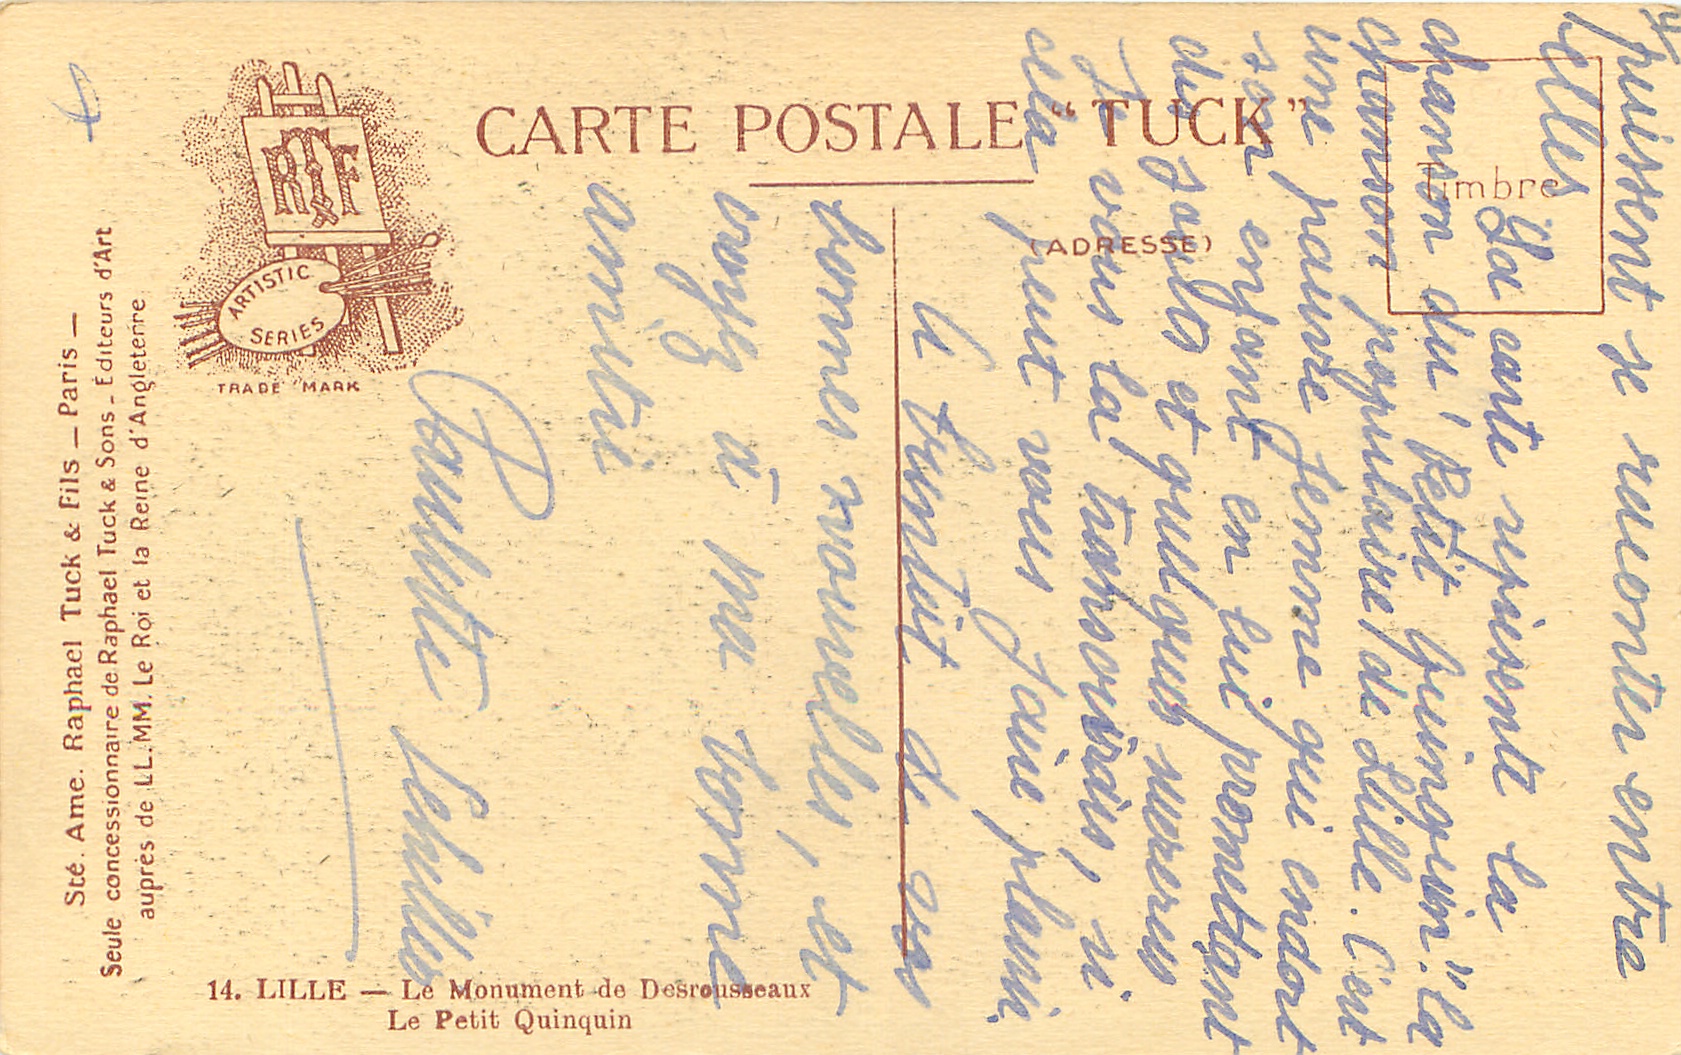 CARTE POSTALE “TUCK”
(ADRESSE)
Timbre
ARTISTIC
SERIES
TRADE MARK
Sté. Ame. Raphael Tuck & Fils — Paris —
Seule concessionnaire de Raphael Tuck & Sons - Éditeurs d'Art
auprès de LL.MM. Le Roi et la Reine d'Angleterre
14. LILLE — Le Monument de Desrousseaux
Le Petit Quinquin
4
puissent se raconter entre
elles
La carte représente la
chanson du "Petit Quinquin" la
chanson populaire de Lille. C'est
une pauvre femme qui endort
son enfant en lui promettant
des et quelques
Je vous la transcrirais, si
cela peut vous faire plaisir
le de vos
bonnes nouvelles, et
croyez à ma bonne
amitié
Paulette